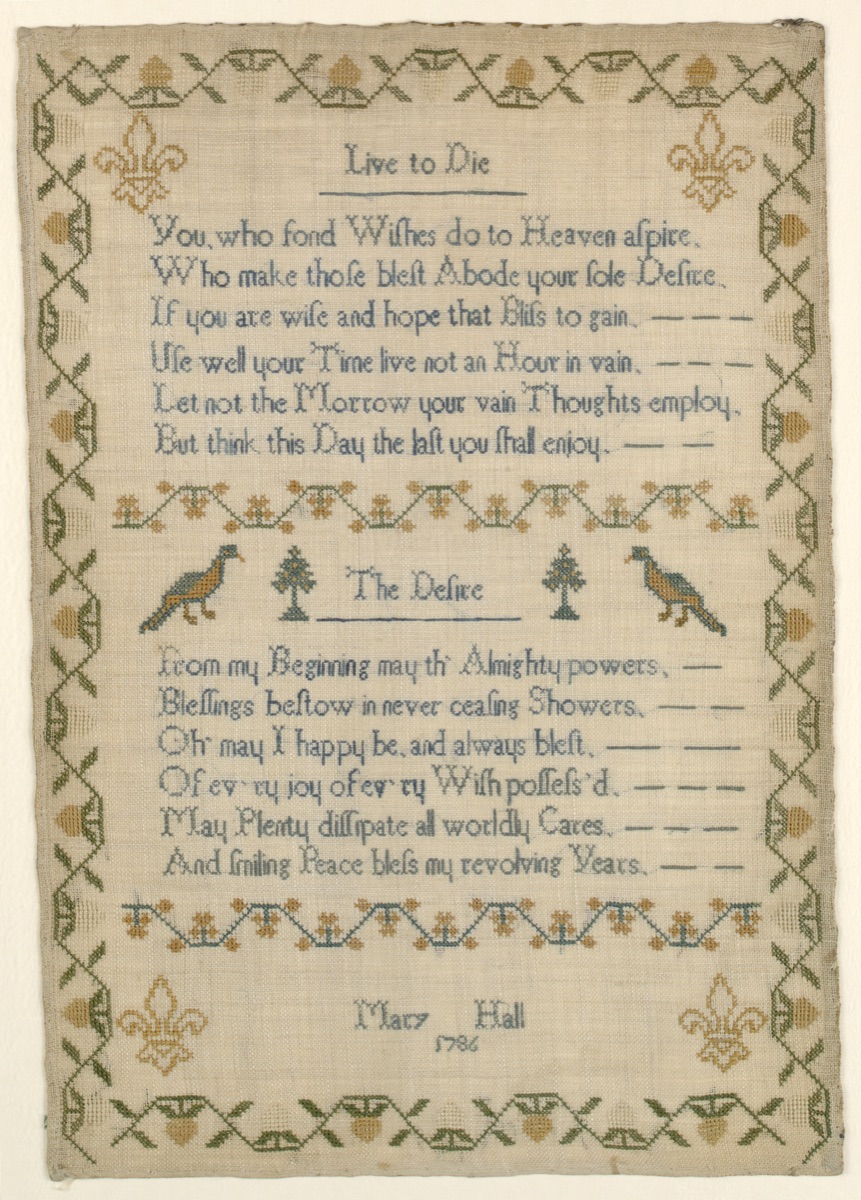 Live to Die
You, who fond Wiſhes do to Heaven aſpire,
Who make thoſe bleſt Abode your ſole Deſire,
If you are wiſe and hope that Bliſs to gain, — — —
Uſe well your Time live not an Hour in vain, — — —
Let not the Morrow your vain Thoughts employ,
But think this Day the laſt you ſhall enjoy. — —
The Deſire
From my Beginning may th' Almighty powers, —
Bleſſings beſtow in never ceaſing Showers, — —
Oh' may I happy be, and always bleſt, — —
Of ev'ry joy of ev'ry Wiſh poſſeſs'd, — — —
May Plenty diſſipate all worldly Cares, — — —
And ſmiling Peace bleſs my revolving Years, — —
Mary Hall
1786